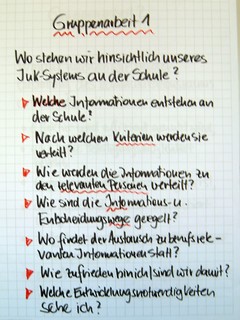 Gruppenarbeit 1
Wo stehen wir hinsichtlich unseres
IuK-Systems an der Schule?
Welche Informationen entstehen an
der Schule?
Nach welchen Kriterien werden sie
verteilt?
Wie werden die Informationen zu
den relevanten Personen verteilt?
Wie sind die Informations- u.
Entscheidungswege geregelt?
Wo findet der Austausch zu berufsrele-
vanten Informationen statt?
Wie zufrieden bin ich/sind wir damit?
Welche Entwicklungsnotwendigkeiten
sehe ich?